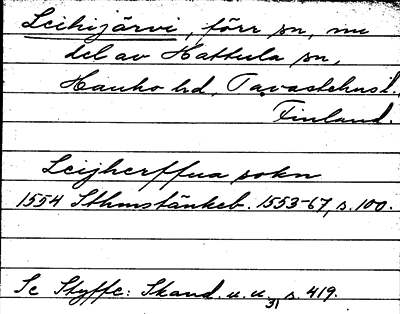 Leihijärvi, förr sn, nu
del av Hattula sn,
Hauho hd, Tavastehusl.,
Finland.
Leijherffua sokn
1554 Sthmstänkeb. 1553-67, s. 100.
Se Styffe: Skand. u. u.31 s. 419.